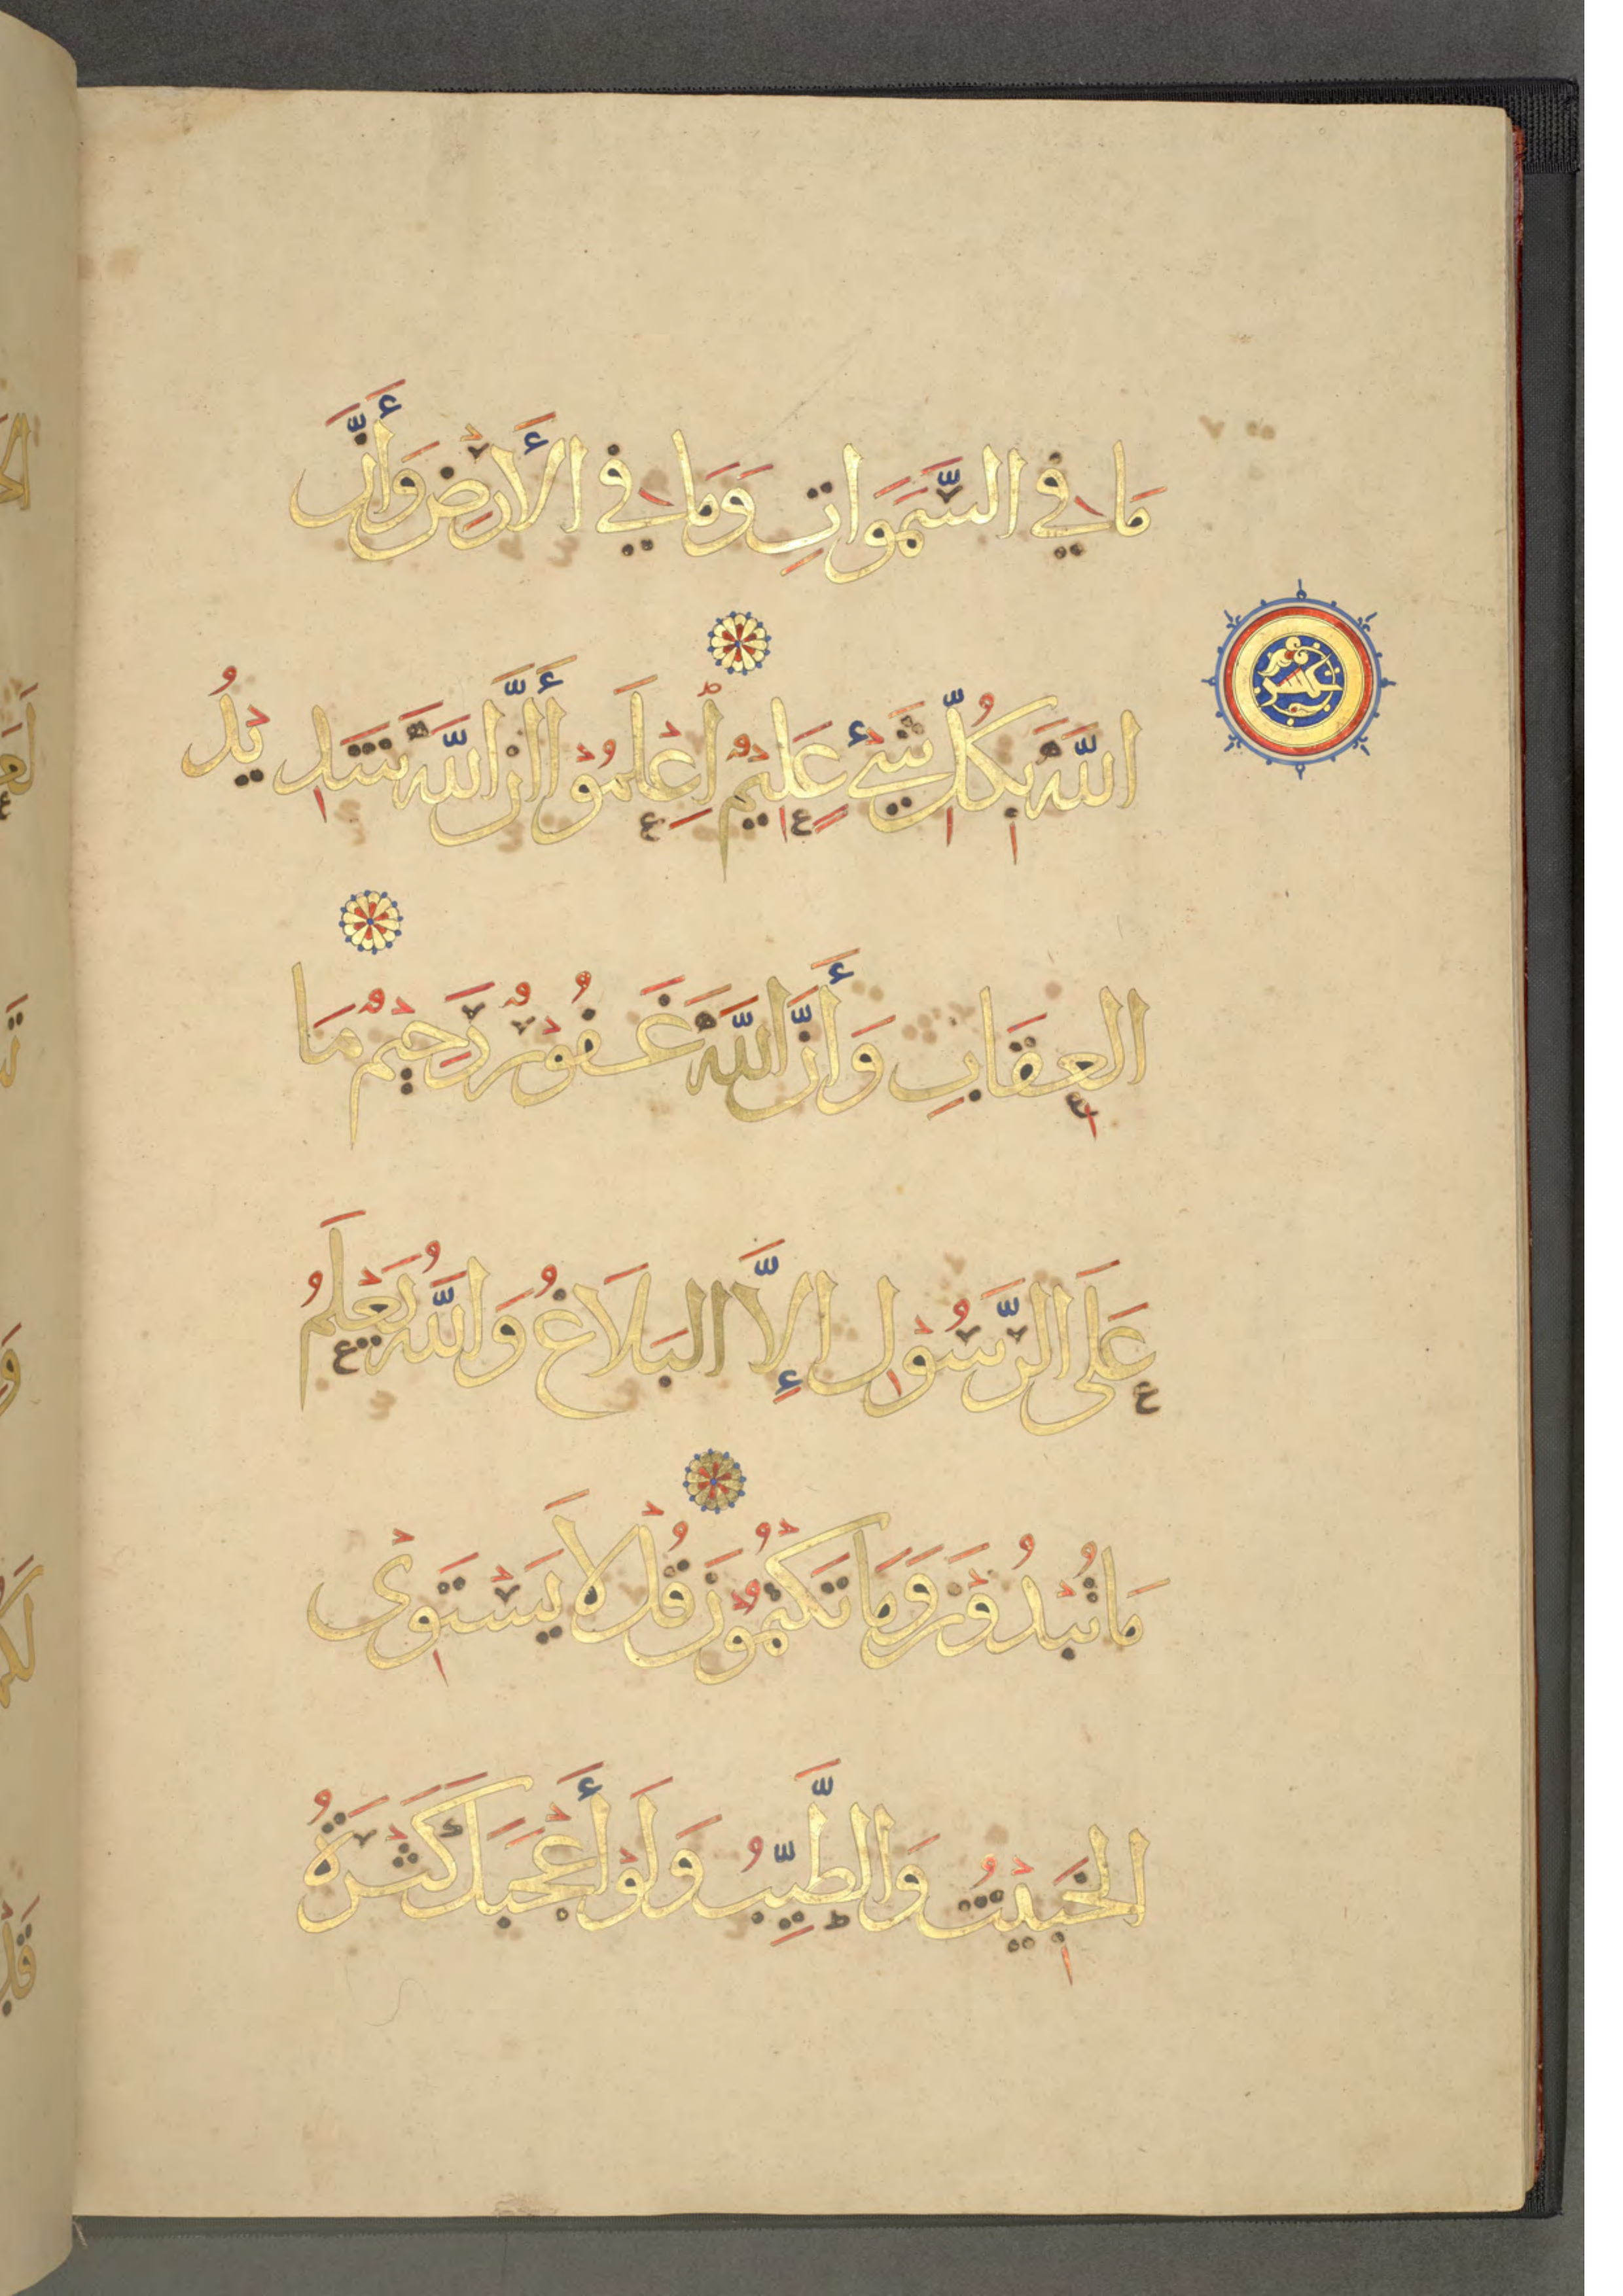 مَا فِي السَّمَوَاتِ وَمَا فِي الْأَرْضِ وَأَنَّ
اللَّهَ بِكُلِّ شَيْءٍ عَلِيمٌ اِعْلَمُوْا أَنَّ اللَّهَ شَدِيْدُ
الْعِقَابِ وَأَنَّ اللَّهَ غَفُوْرٌ رَحِيْمٌ مَا
عَلَى الرَّسُوْلِ إِلَّا الْبَلَاغُ وَاللَّهُ يَعْلَمُ
مَا تُبْدُوْنَ وَمَا تَكْتُمُوْنَ قُلْ لَا يَسْتَوِىْ
الْخَبِيْثُ وَالطَّيِّبُ وَلَوْ أَعْجَبَكَ كَثْرَةُ